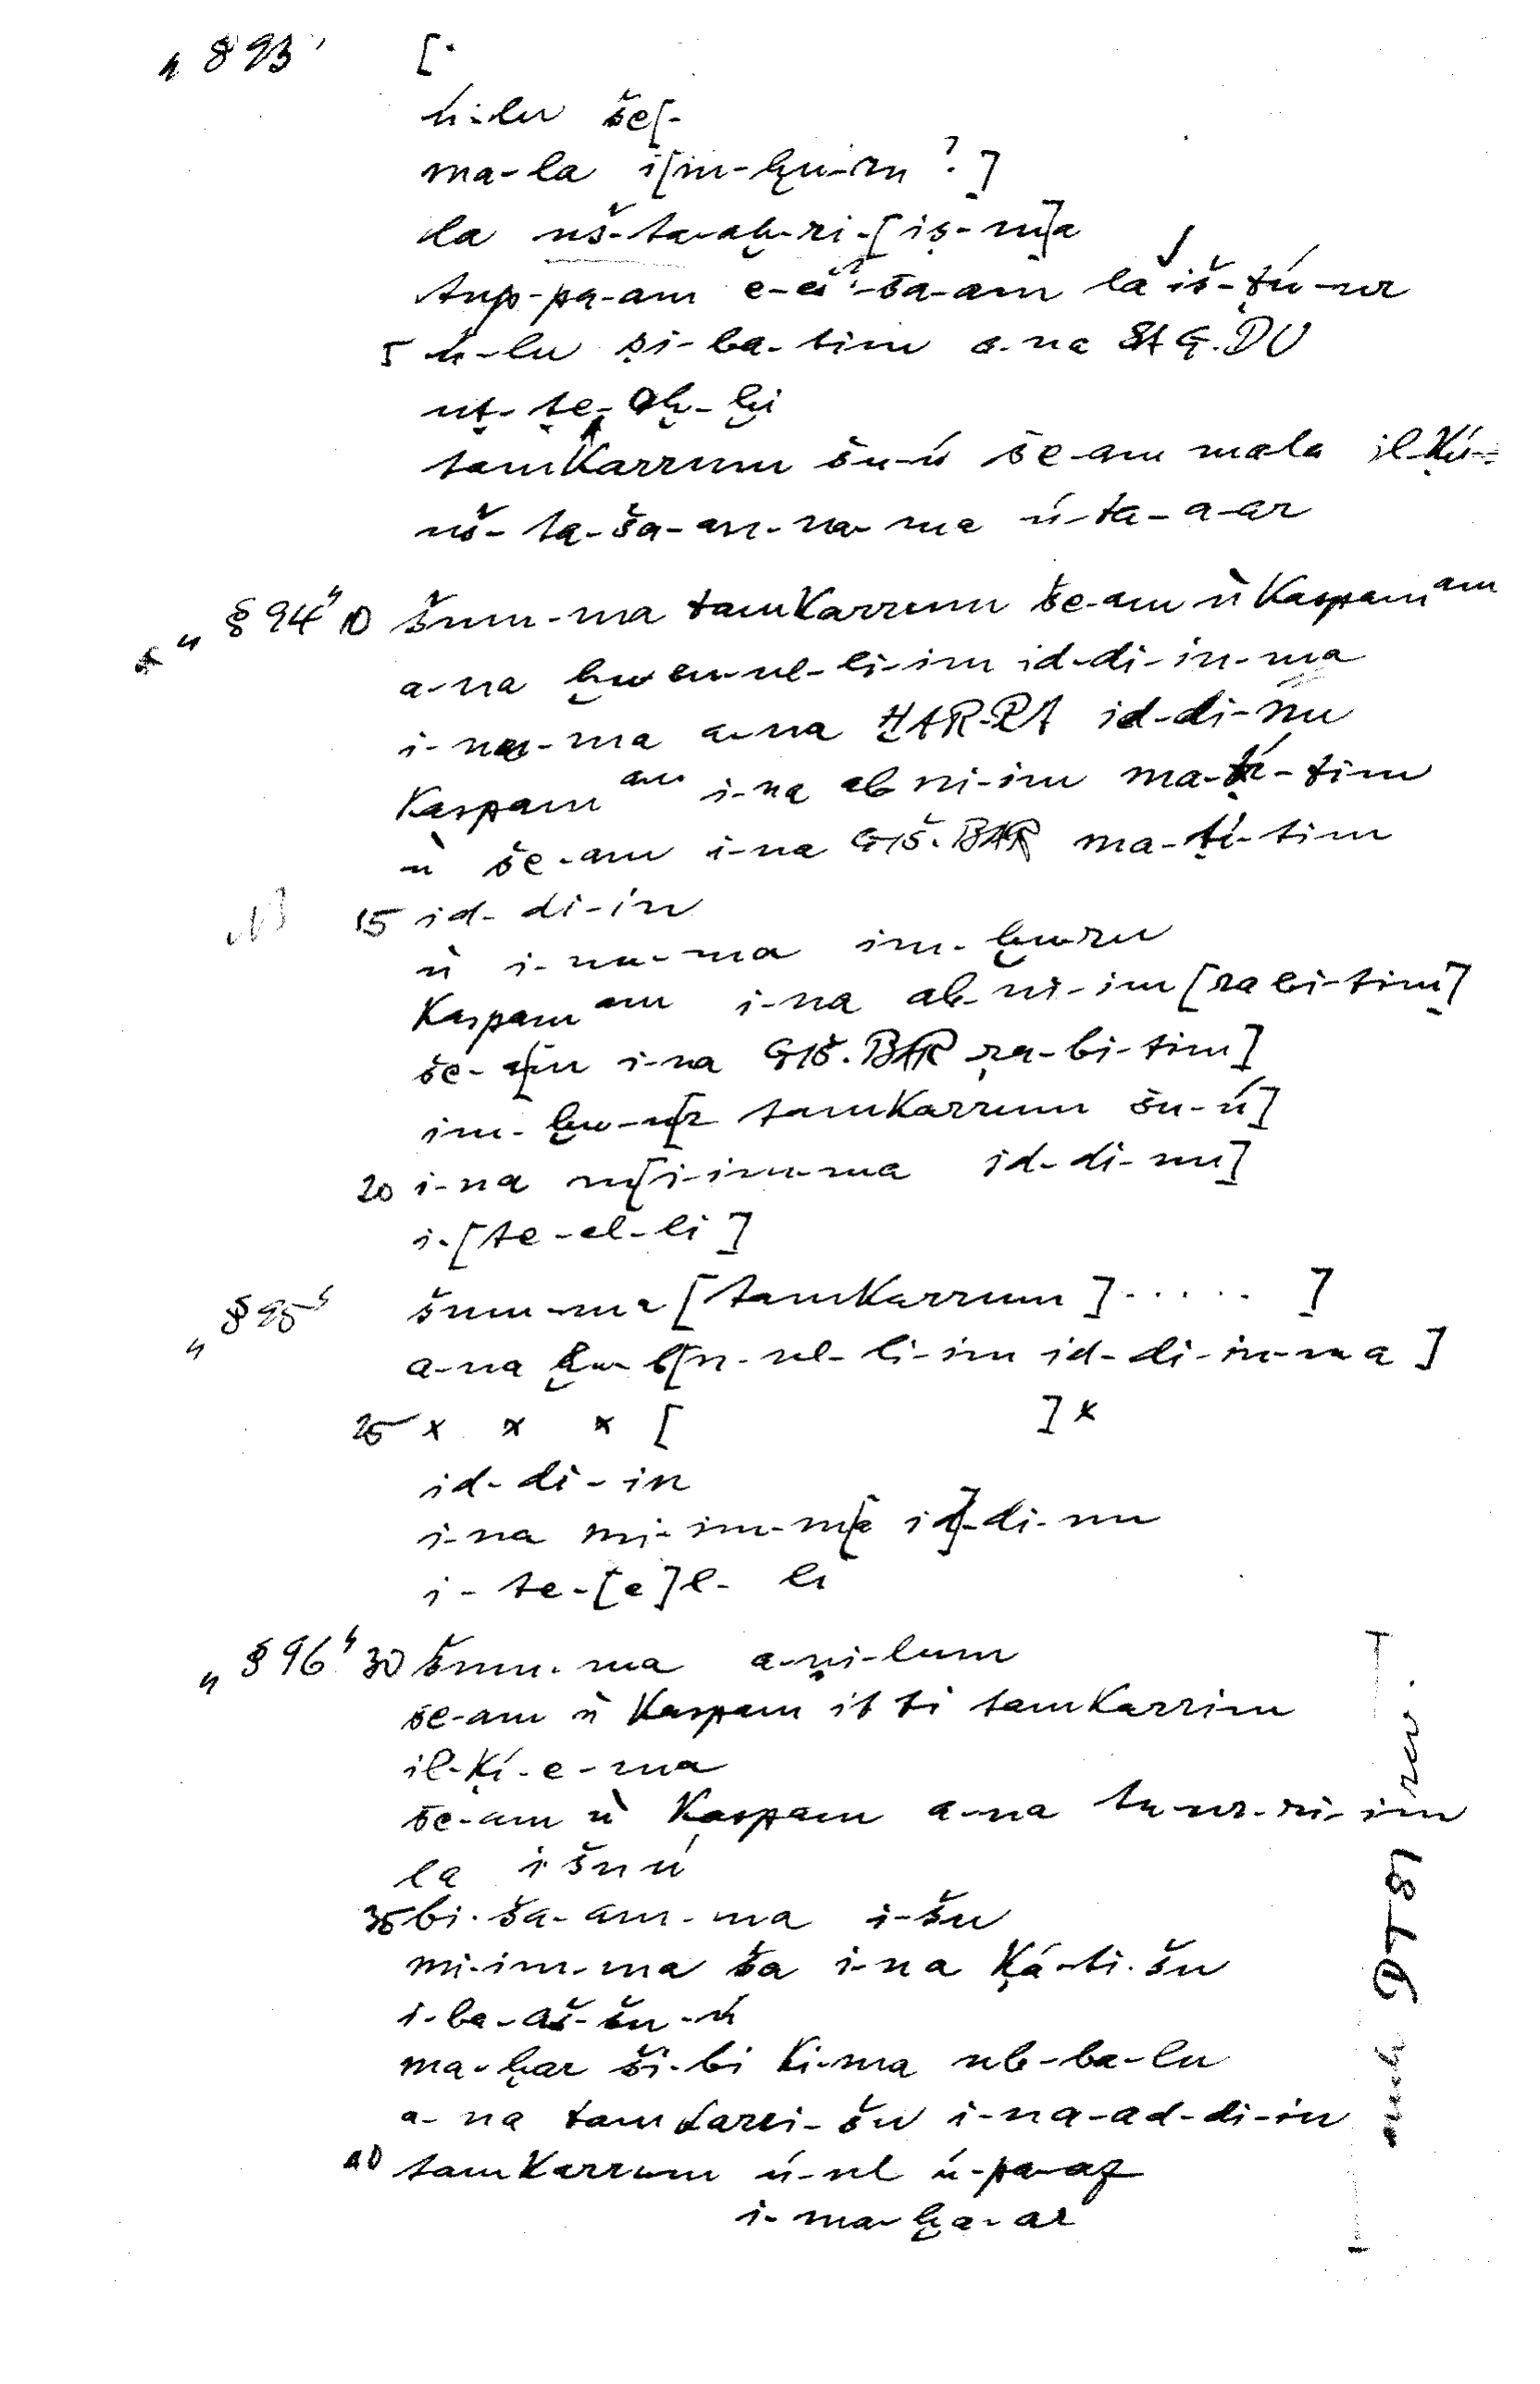 „ § 93' [.
ú-lu še[-
ma-la i[m-ḫu-ru ?]
la uš-ta-aḫ-ri-[iṣ-m]a
tup-pa-am e-eš-ša-am la iš-ṭú-ur
5 ú-lu ṣi-ba-tim a-na SAG.DU
uṭ-ṭe-eḫ-ḫi
tamKarrum šu-ú še-am mala il-Ḳú-
uš-ta-ša-an-na-ma ú-ta-a-ar
„ § 94' 10 šum-ma tamKarrum še-am ù Kaspam am
a-na ḫu bu-ul-li-im id-di-in-ma
i-nu-ma a-na ḪAR-RA id-di-nu
Kaspam am i-na ab ni-im ma-ṭí-tim
ù še-am i-na GIŠ.BAR ma-ṭí-tim
15 id-di-in
ù i-nu-ma im-ḫu-ru
Kaspam am i-na ab-ni-im [ra bi-tim]
še-a[m i-na GIŠ.BAR ra-bi-tim]
im-ḫu-u[r tamKarrum šu-ú]
20 i-na m[i-im-ma id-di-nu]
i-[te-el-li]
„ § 95' šum-ma [tamKarrum] . . . . . ]
a-na ḫu-b[u-ul-li-im id-di-in-ma]
25 x x x [ ] x
id-di-in
i-na mi-im-m[a id]-di-nu
i-te-[e]l-li
„ § 96' 30 šum-ma a-u̯i-lum
še-am ù Kaspam it ti tamKarrim
il-Ḳí-e-ma
še-am ù Kaspam a-na tu-ur-ri-im
la i šu ú
35 bi-ša-am-ma i-šu
mi-im-ma ša i-na Ḳá-ti-šu
i-ba-aš-šu-ú
ma-ḫar ši-bi Ki-ma ub-ba-lu
a-na tamKarri-šu i-na-ad-di-in
40 tamKarrum ú-ul ú-pa-az
i-ma-ḫa-ar
nach DT 81 rev.